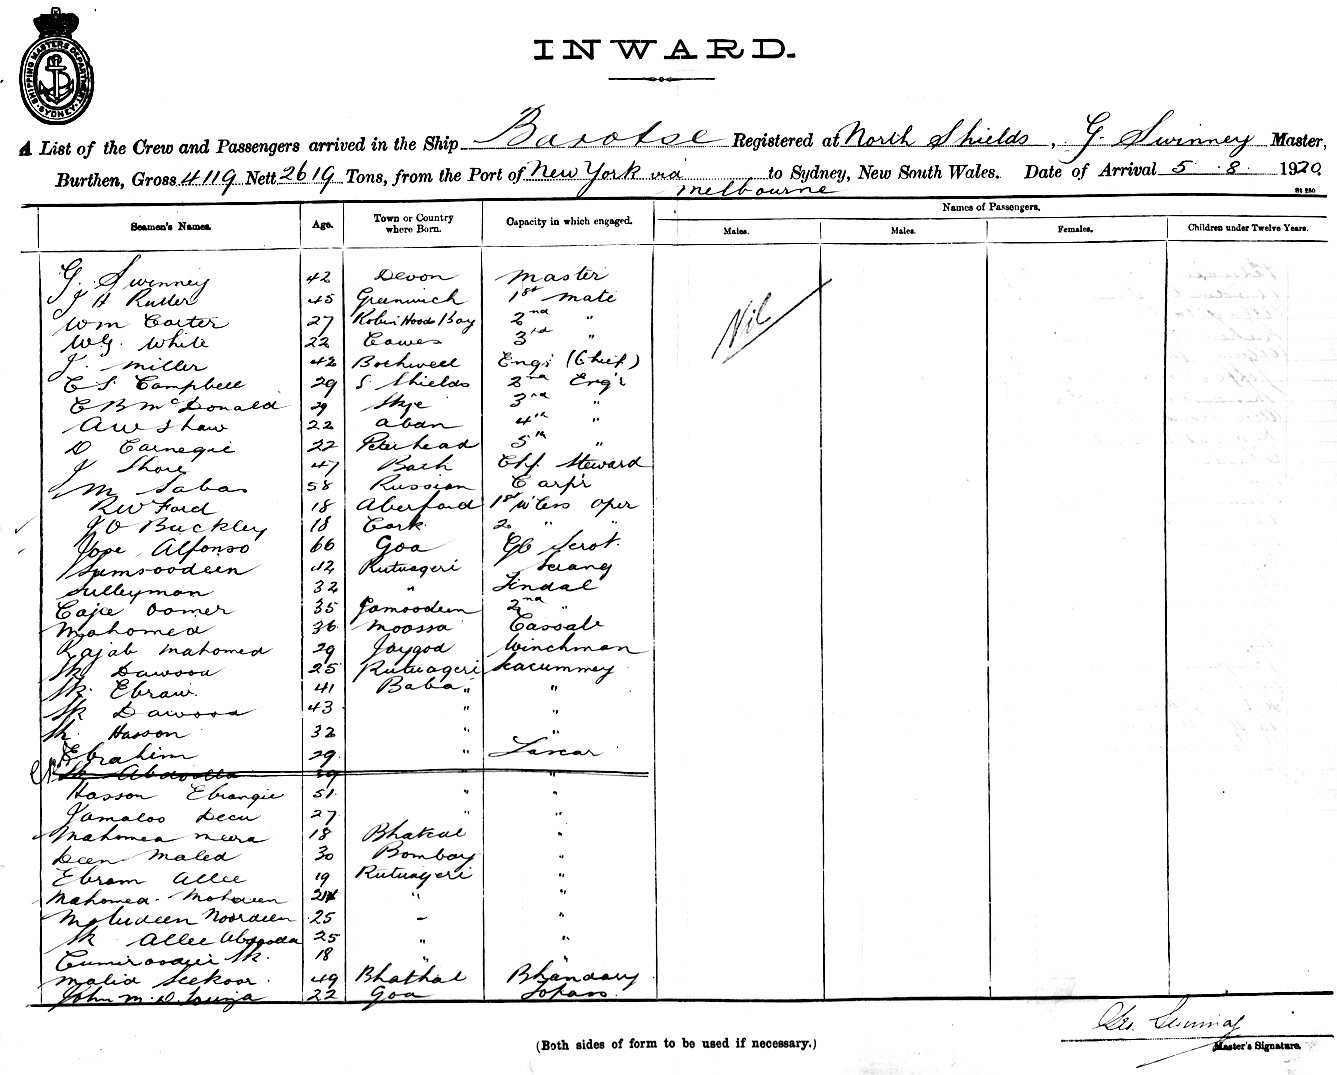 SHIPPING MASTERS DEPARTMENT SYDNEY
INWARD.
A List of the Crew and Passengers arrived in the Ship Barotse Registered at North Shields, G. Swinney Master,
Burthen, Gross 4119 Nett 2619 Tons, from the Port of New York via Melbourne to Sydney, New South Wales. Date of Arrival 5 . 8 . 1920.
Names of Passengers.
Seamen's Names. Age. Town or Country where Born. Capacity in which engaged. Males. Males. Females. Children under Twelve Years.
G. Swinney 42 Devon Master
J H Rutter 45 Greenwich 1st Mate
Nil
Wm Carter 27 Robin Hoods Bay 2nd "
W.G. White 22 Cowes 3rd "
J. Miller 42 Bothwell Engr (Chief)
C S Campbell 29 S Shields 2nd Engr
C B McDonald 29 Skye 3rd "
A W Shaw 22 Oban 4th "
D Carnegie 22 Peterhead 5th "
J Shore 47 Bath Chf Steward
M Sabas 58 Russian Carpr
R W Ford 18 Aberford 1st W'less Oper
J O Buckley 18 Cork 2 " "
Jose Alfonso 66 Goa
Sumsoodeen 42 Rutnageri Serang
Sulleyman 32 " Tindal
Oomer 35 Jamoodeen 2nd "
Mahomed 36 Moossa Cassab
Rajab Mahomed 29 Jaygod Winchman
Sk Dawood 25 Rutnageri
Sk. Ebraim 41 Baba " "
Sk Dawood 43 " "
Sk. Hasson 32 " "
Ebrahim 29 " Lascar
Sk Abdoolla 39 "
Hasson 51 " "
Jamaloo Deen 27 " "
Mahomed Meera 18 Bhatcal "
Deen Maled 30 Bombay "
Ebram Allee 19 Rutnageri "
Mahomed " "
Noordeen 25 - "
Sk Allee Abdoolla 25 " "
Sk. 18 " "
Malid Seekoor 49 Bhathal Bhandary
John M. D Souza 22 Goa Topass.
Geo. Swinney
Master's Signature.
(Both sides of form to be used if necessary.)